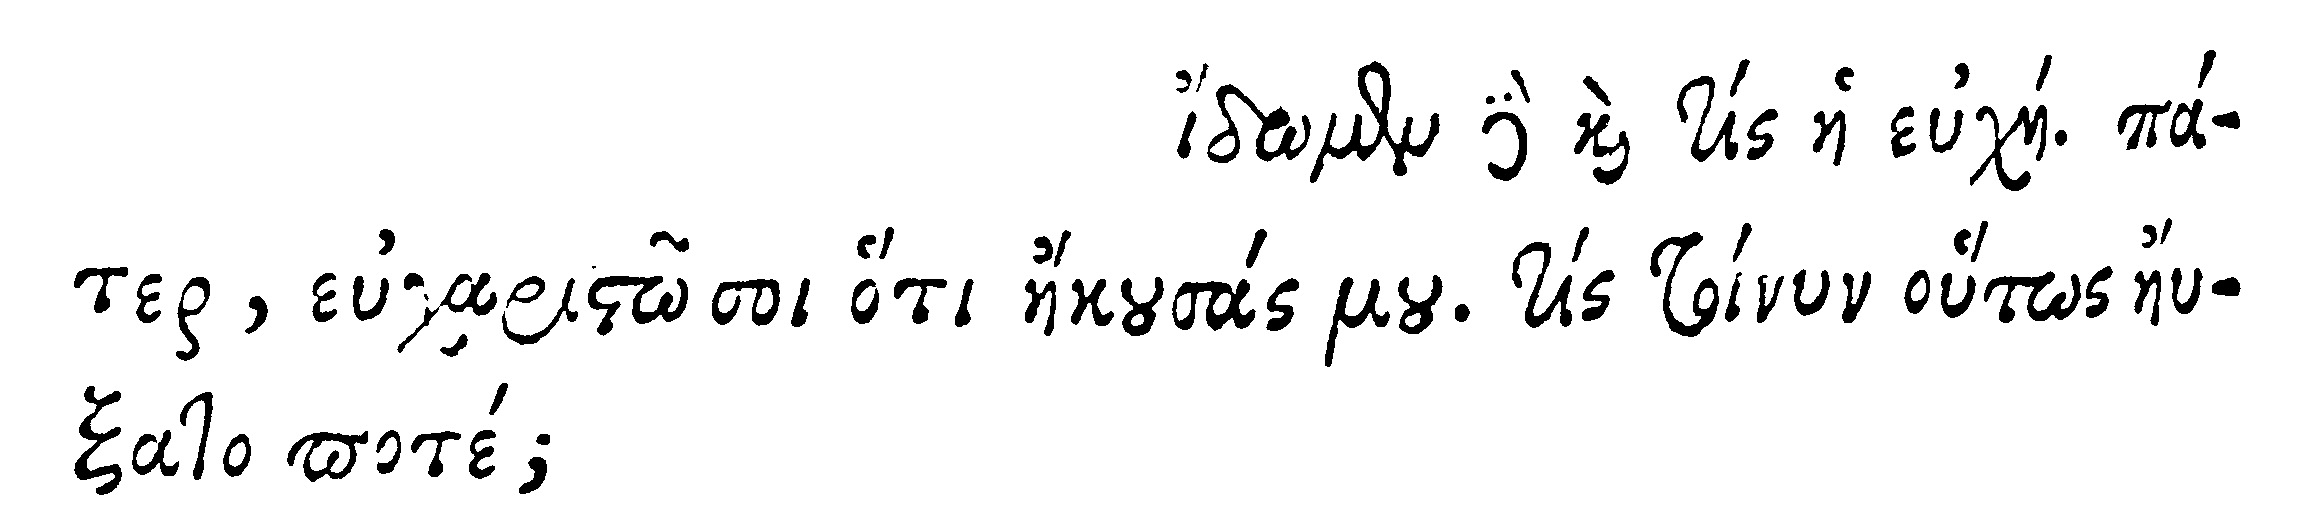 ἴδωμεν δὲ καὶ τίς ἡ εὐχή. πά-
τερ, εὐχαριστῶ σοι ὅτι ἤκουσάς μου. τίς τοίνυν οὕτως ηὔ-
ξατο ποτέ;